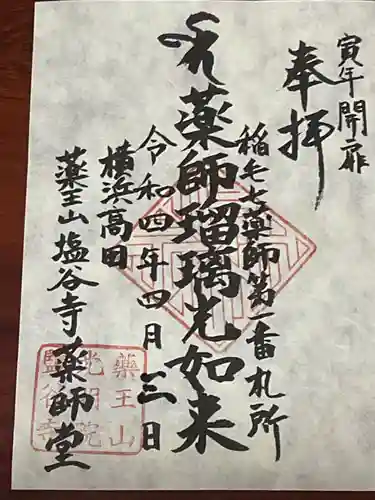 寅年開扉
奉拝
稲毛七薬師第一番札所
薬師瑠璃光如来
令和四年四月三日
横浜高田
薬王山塩谷寺薬師堂
薬王山
光明院
鹽谷寺